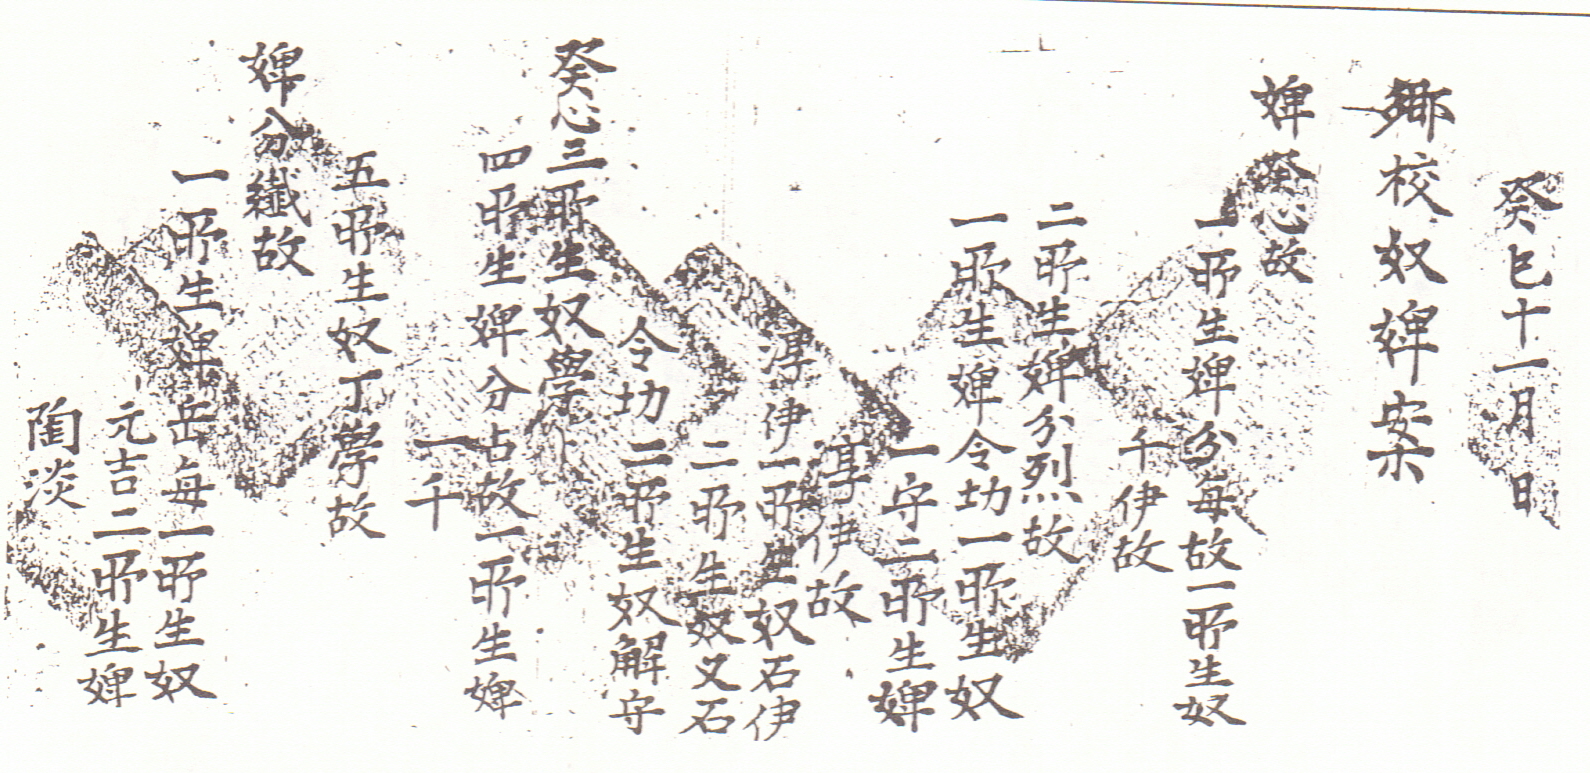 癸巳十一月 日
鄕校奴婢案
婢癸心故
一所生婢分每故一所生奴
千伊故
二所生婢分烈故
一所生婢令㔖一所生奴
一守二所生婢
淳伊故
淳伊一所生奴石伊
二所生奴又石
令㔖二所生奴解守
癸心三所生奴學
四所生婢分占故一所生婢
一千
五所生奴丁學故
婢分纖故
一所生婢岳每一所生奴
元吉二所生婢
陶淡